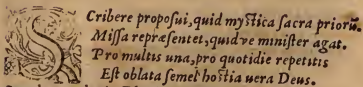 SCribere propoſui, quid myſtica ſacra priorū.
Miſſa repræſentet, quidve miniſter agat.
Pro multis una, pro quotidie repetitis
Eſt oblata ſemel hoſtia uera Deus.